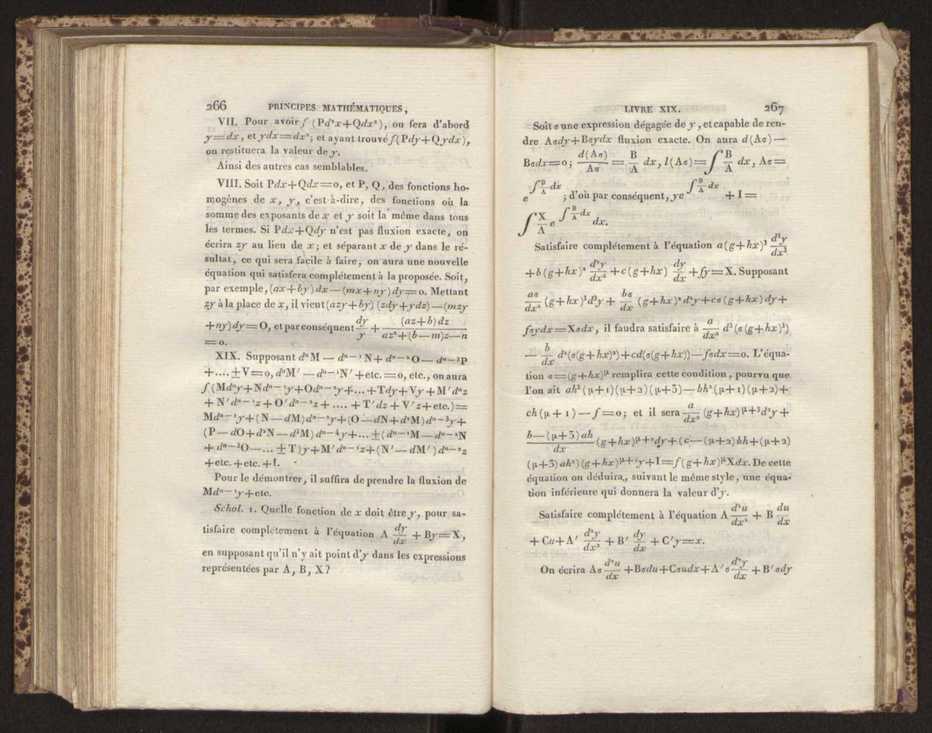 266 PRINCIPES MATHÉMATIQUES,
VII. Pour avoir ∫(Pd²x+Qdx²), on fera d'abord
y=dx, et ydx=dx²; et ayant trouvé ∫(Pdy+Qydx),
on restituera la valeur de y.
Ainsi des autres cas semblables.
VIII. Soit Pdx+Qdx=0, et P, Q, des fonctions ho-
mogènes de x, y, c'est-à-dire, des fonctions où la
somme des exposants de x et y soit la même dans tous
les termes. Si Pdx+Qdy n'est pas fluxion exacte, on
écrira zy au lieu de x; et séparant x de y dans le ré-
sultat, ce qui sera facile à faire, on aura une nouvelle
équation qui satisfera complétement à la proposée. Soit,
par exemple, (ax+by)dx—(mx+ny)dy=0. Mettant
zy à la place de x, il vient (azy+by)(zdy+ydz)—(mzy
+ny)dy=O, et par conséquent dy/y + (az+b)dz/(az²+(b—m)z—n)
=0.
XIX. Supposant dⁿM — dⁿ⁻¹N + dⁿ⁻²O — dⁿ⁻³P
+....±V=0, dⁿM′ — dⁿ⁻¹N′ +etc.=0, etc., on aura
∫(Mdⁿy+Ndⁿ⁻¹y+Odⁿ⁻²y+...+Tdy+Vy+M′dⁿz
+ N′dⁿ⁻¹z+O′dⁿ⁻²z+ .... + T′dz + V′z+etc.)=
Mdⁿ⁻¹y+(N—dM)dⁿ⁻²y+(O—dN+d²M)dⁿ⁻³y+
(P—dO+d²N—d³M)dⁿ⁻⁴y+...±(dⁿ⁻¹M—dⁿ⁻²N
+dⁿ⁻³O—...±T)y+M′dⁿ⁻¹z+(N′—dM′)dⁿ⁻²z
+etc.+etc.+I.
Pour le démontrer, il suffira de prendre la fluxion de
Mdⁿ⁻¹y+etc.
Schol. 1. Quelle fonction de x doit être y, pour sa-
tisfaire complétement à l'équation A dy/dx + By=X,
en supposant qu'il n'y ait point d'y dans les expressions
représentées par A, B, X?
LIVRE XIX. 267
Soit σ une expression dégagée de y, et capable de ren-
dre Aσdy+Bσydx fluxion exacte. On aura d(Aσ)—
Bσdx=0; d(Aσ)/Aσ = B/A dx, l(Aσ)=∫B/A dx, Aσ=
e^∫(B/A)dx; d'où par conséquent, ye^∫(B/A)dx + I =
∫X/A e^∫(B/A)dx dx.
Satisfaire complétement à l'équation a(g+hx)³ d³y/dx³
+b(g+hx)² d²y/dx² +c(g+hx) dy/dx +fy=X. Supposant
aσ/dx² (g+hx)³d³y+ bσ/dx (g+hx)²d²y+cσ(g+hx)dy+
fσydx=Xσdx, il faudra satisfaire à a/dx² d³(σ(g+hx)³)
— b/dx d²(σ(g+hx)²)+cd(σ(g+hx))—fσdx=0. L'équa-
tion σ=(g+hx)^μ remplira cette condition, pourvu que
l'on ait ah³(μ+1)(μ+2)(μ+3)—bh²(μ+1)(μ+2)+
ch(μ+1)—f=0; et il sera a/dx² (g+hx)^(μ+3)d²y+
(b—(μ+3)ah)/dx (g+hx)^(μ+2)dy+(c—(μ+2)bh+(μ+2)
(μ+3)ah²)(g+hx)^(μ+1)y+I=∫(g+hx)^μXdx. De cette
équation on déduira, suivant le même style, une équa-
tion inférieure qui donnera la valeur d'y.
Satisfaire complétement à l'équation A d²u/dx² + B du/dx
+Cu+A′ d²y/dx² + B′ dy/dx + C′y=x.
On écrira Aσ d²u/dx +Bσdu+Cσudx+A′σ d²y/dx + B′σdy